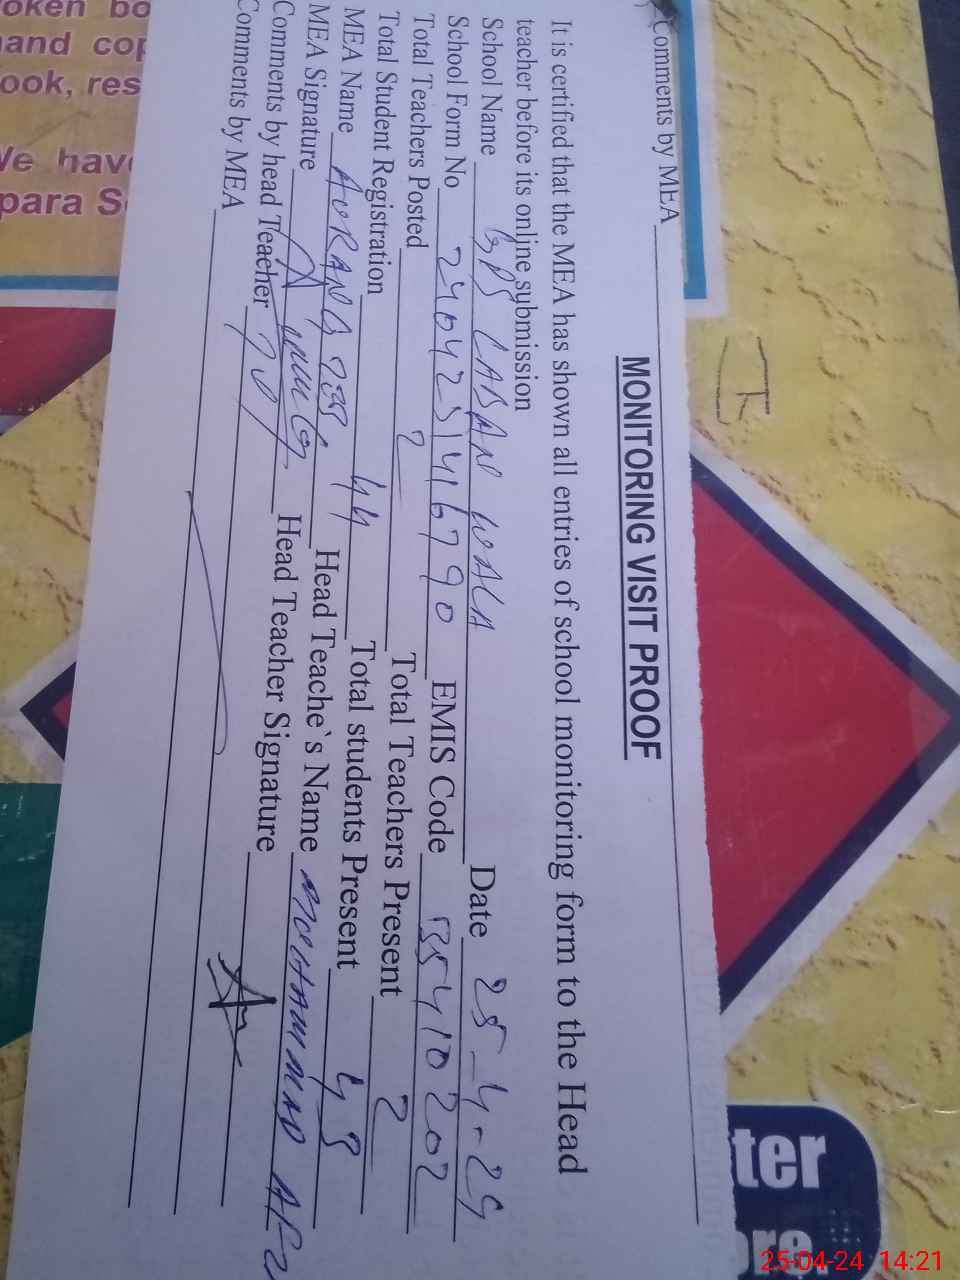 Comments by MEA
MONITORING VISIT PROOF
It is certified that the MEA has shown all entries of school monitoring form to the Head
teacher before its online submission
School Name GPS LABAN WALA Date 25-4-24
School Form No EMIS Code 35410202
Total Teachers Posted 2 Total Teachers Present 2
Total Student Registration 44 Total students Present 43
MEA Name AURANG ZEB Head Teache`s Name MUHAMMAD
MEA Signature Head Teacher Signature
Comments by head Teacher
Comments by MEA
oken bo
and cop
ook, res
We hav
para S
ter
re.
25-04-24 14:21